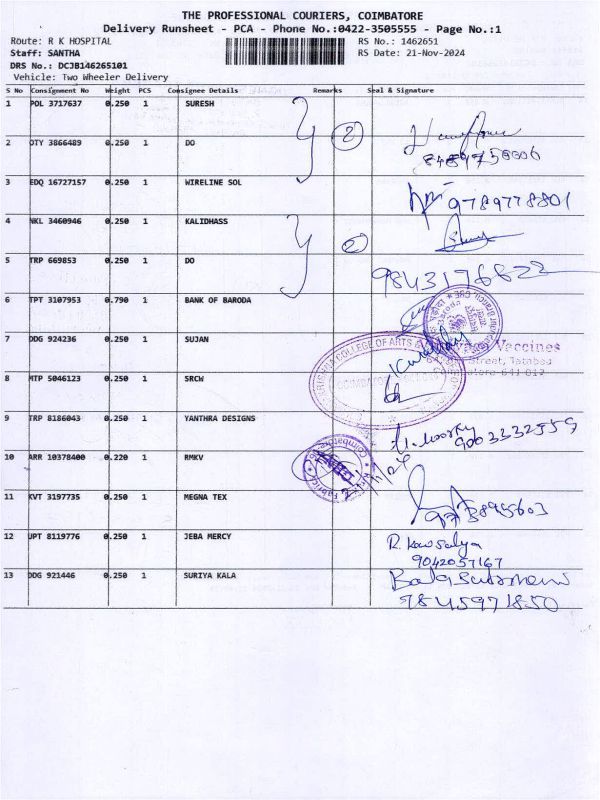 THE PROFESSIONAL COURIERS, COIMBATORE
Delivery Runsheet - PCA - Phone No.:0422-3505555 - Page No.:1
Route: R K HOSPITAL RS No.: 1462651
Staff: SANTHA RS Date: 21-Nov-2024
DRS No.: DCJB146265101
Vehicle: Two Wheeler Delivery
S No Consignment No Weight PCS Consignee Details Remarks Seal & Signature
1 POL 3717637 0.250 1 SURESH
2 OTY 3866489 0.250 1 DO 2
3 EDQ 16727157 0.250 1 WIRELINE SOL 9789778801
4 NKL 3460946 0.250 1 KALIDHASS
5 TRP 669853 0.250 1 DO 2 9843176822
6 TPT 3107953 0.790 1 BANK OF BARODA
7 DDG 924236 0.250 1 SUJAN Vaccines
Street, Tatabad
Coimbatore 641 012
KRISHNA COLLEGE OF ARTS &
8 MTP 5046123 0.250 1 SRCW
9 TRP 8186043 0.250 1 YANTHRA DESIGNS 9003332559
10 ARR 10378400 0.220 1 RMKV
11 KVT 3197735 0.250 1 MEGNA TEX
12 JPT 8119776 0.250 1 JEBA MERCY R. Kowsalya
9042057167
13 DDG 921446 0.250 1 SURIYA KALA
9845971850